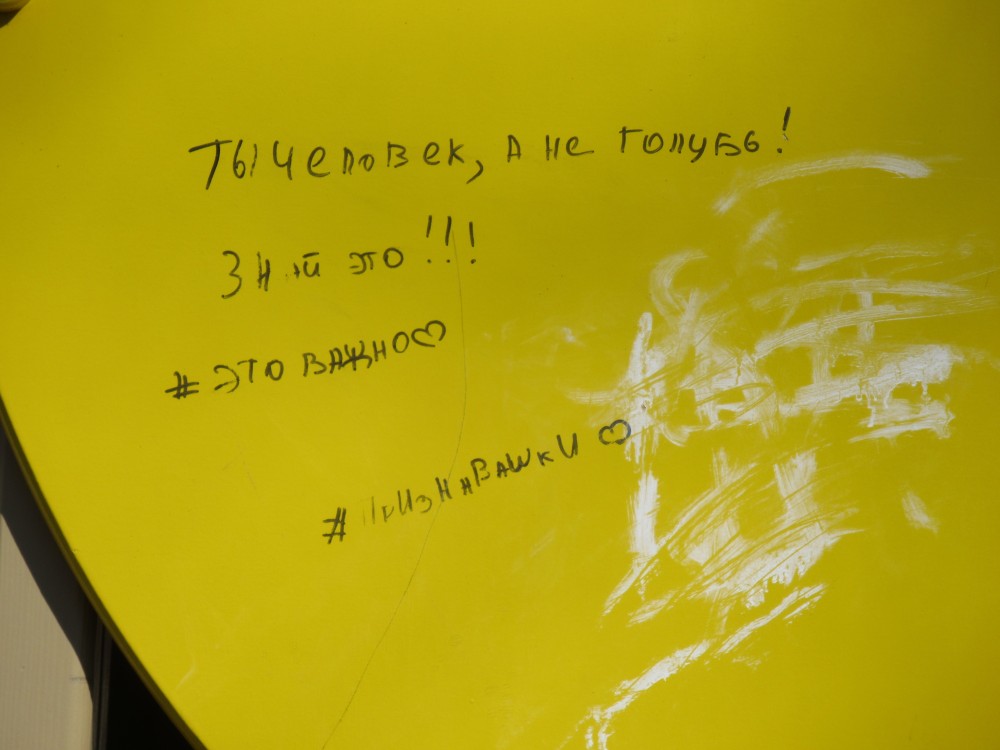 Ты человек, а не голубь!
Знай это!!!
#ЭТО ВАЖНО♡
#признавашки ♡